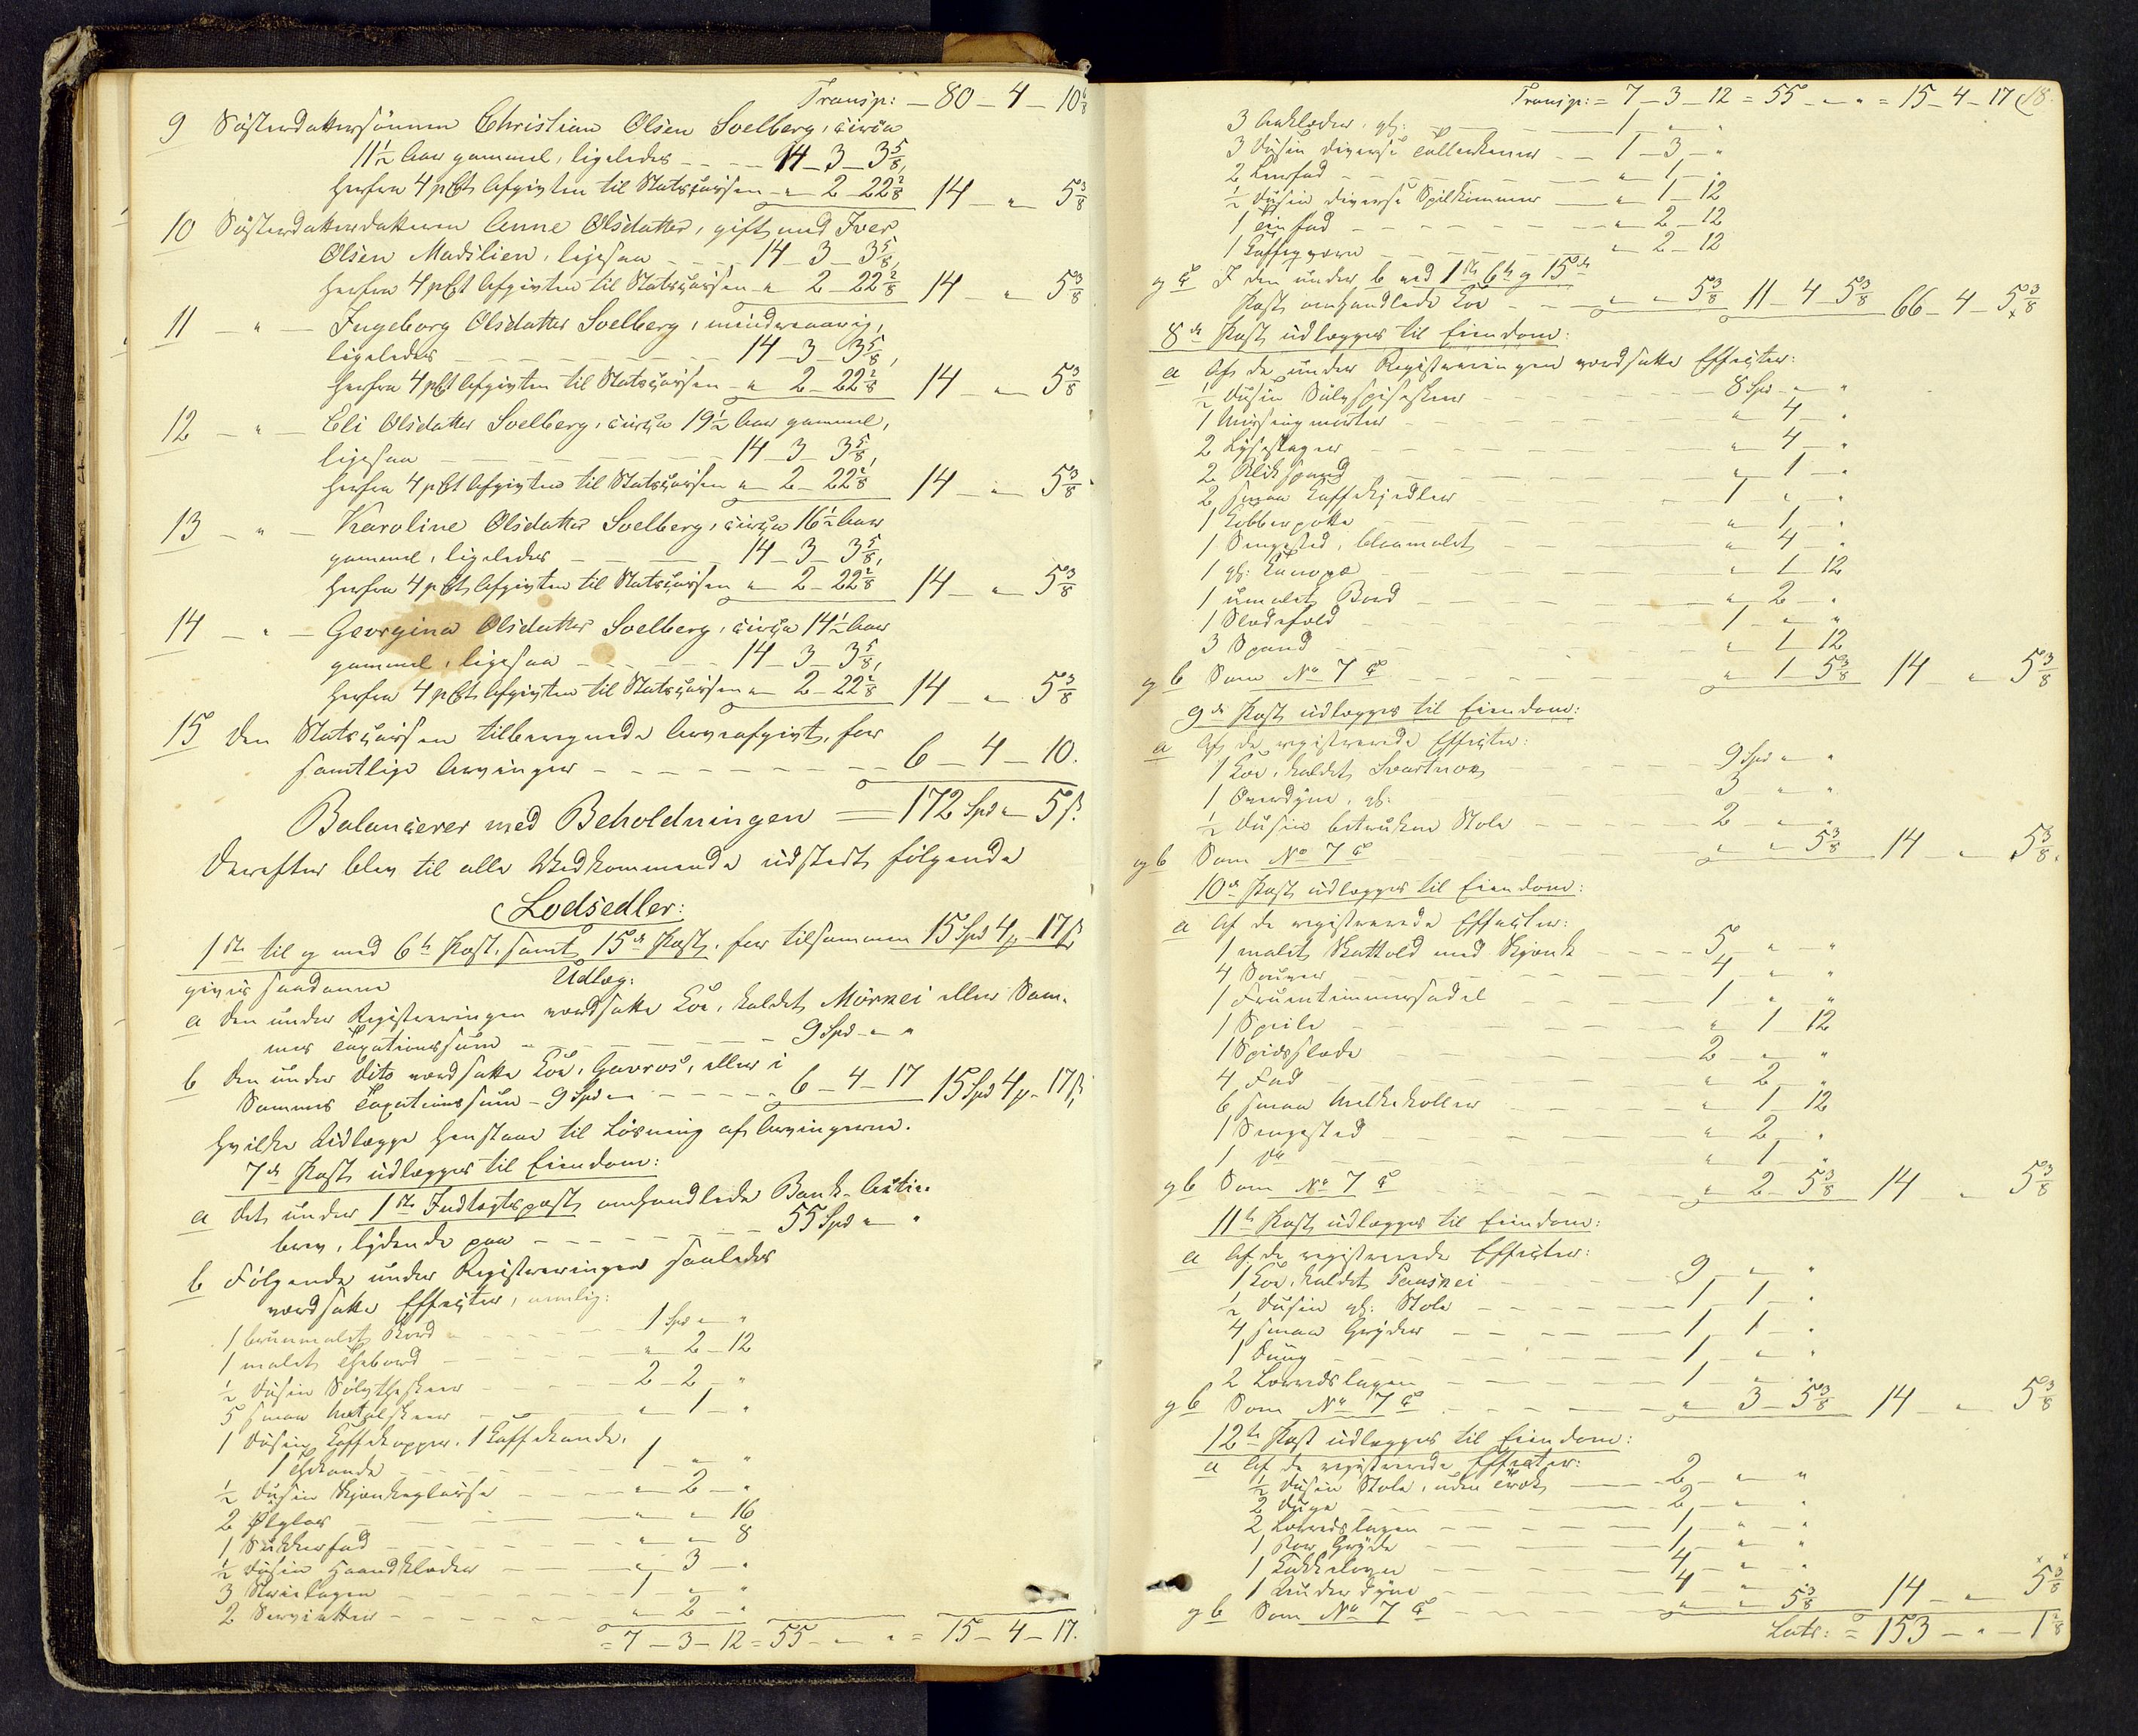 Transp: – 80 – 4 – 10 6/8
9 Søsterdattersønnen Christian Olsen Soelberg, circa
11½ Aar gammel, ligeledes – – – 14 – 3 – 3 5/8,
herfra 4 pCt Afgivten til Statscassen – " 2 – 22 2/8 14 – " 5 3/8
10 Søsterdatterdatteren Anne Olsdatter, gift med Iver
Olsen Madslien, ligesaa – – – 14 – 3 – 3 5/8,
herfra 4 pCt Afgivten til Statscassen – " 2 – 22 2/8 14 – " 5 3/8
11 – " – Ingeborg Olsdatter Soelberg, mindreaarig,
ligeledes – – – 14 – 3 – 3 5/8,
herfra 4 pCt Afgivten til Statscassen – " 2 – 22 2/8 14 – " 5 3/8
12 – " – Eli Olsdatter Soelberg, circa 19½ Aar gammel,
ligesaa – – – 14 – 3 – 3 5/8,
herfra 4 pCt Afgivten til Statscassen " – 2 – 22 2/8 14 – " 5 3/8
13 – " – Karoline Olsdatter Soelberg, circa 16½ Aar
gammel, ligeledes – – – 14 – 3 – 3 5/8,
herfra 4 pCt Afgivten til Statscassen " – 2 – 22 2/8 14 – " 5 3/8
14 – " – Georgina Olsdatter Soelberg, circa 14½ Aar
gammel, ligesaa – – – 14 – 3 – 3 5/8,
herfra 4 pCt Afgivten til Statscassen " – 2 – 22 2/8 14 – " 5 3/8
15 Den Statscassen tilberegnede Arveafgivt, for
samtlige Arvinger – – – 6 – 4 – 10.
Balancerer med Beholdningen = 172 Spd " 5 ß.
Derefter blev til alle Vedkommende udstedt følgende
Lodsedler:
1ste til og med 6te Post, samt 15de Post, for tilsammen 15 Spd 4 – 17 ß
gives saadanne Udlæg:
a Den under Registreringen værdsatte Koe, kaldet Mörkei eller Sam-
mes Taxationssum – – – 9 Spd " "
b Den under dito værdsatte Koe, Gavros, eller i
Sammes Taxationssum – 9 Spd – – – 6 – 4 – 17 15 Spd 4 – 17 ß,
hvilke Udlægge henstaae til Løsning af Arvingerne.
7de Post udlægges til Eiendom:
a Det under 1ste Indtægtspost omhandlede Bank-Actie-
brev, lydende paa – – – 55 Spd " "
b Følgende under Registreringen saaledes
værdsatte Effecter, nemlig:
1 brunmalet Bord – – – 1 Spd " "
1 malet Thebord – – – " 2 – 12
½ Dusin Sølvtheskeer – – – 2 – 2 – "
5 smaa Metalskeer – – – " 1 – "
1 Dusin Kaffekopper, 1 Kaffekande,
1 Thekande – – – 1 – " "
½ Dusin Skjænkeglasse – – – " 2 – "
2 Ølglas – – – " " 16
1 Sukkerfad – – – " " 8
½ Dusin Haandklæder – – – " 3 – "
3 Strielagen – – – 1 – " "
2 Servietter – – – " 2 – "
= 7 – 3 – 12 = 55 – " " = 15 – 4 – 17.
Transp: = 7 – 3 – 12 = 55 – " " = 15 – 4 – 17 18.
3 Aaklæder, gl: – – – 1 – " "
3 Dusin diverse Tallerkener – – 1 – 3 – "
2 Leerfad – – – " 1 – "
½ Dusin diverse Spilkommer – " 1 – 12
1 Tinfad – – – " 2 – 12
1 Kaffeqværn – – – " 2 – 12
og c I den under b ved 1ste 6te og 15de
Post omhandlede Koe – – – " " 5 3/8 11 – 4 – 5 3/8 66 – 4 – 5 3/8
8de Post udlægges til Eiendom:
a Af de under Registreringen værdsatte Effecter:
½ Dusin Sølvspiseskeer – – – 8 Spd – " "
1 Messingmorter – – – " 4 – "
2 Lysestager – – – " 4 – "
2 Blikspand – – – " 1 – "
2 smaa Kaffekjedler – – – 1 " "
1 Kobberpotte – – – " 1 – "
1 Sengested, blaamalet – – – " 4 – "
1 gl: Kanape – – – " 1 12
1 umalet Bord – – – " 2 – "
1 Sladefeld – – – 1 – " "
3 Spand – – – " 1 12
og b Som No 7 c – – – " 1 5 3/8 14 " 5 3/8
9de Post udlægges til Eiendom:
a Af de registrerede Effecter:
1 Koe, kaldet Svartnos – – – 9 Spd " "
1 Overdyne, gl: – – – 3 " "
½ Dusin betrukne Stole – – – 2 – " "
og b Som No 7 c – – – " " 5 3/8 14 " 5 3/8.
10de Post udlægges til Eiendom:
a Af de registrerede Effecter:
1 malet Skattold med Skjænk – – – 5 " – "
4 Souer – – – 4 " "
1 Fruentimmersadel – – – 1 " "
1 Speile – – – " 1 12
1 Spidsslæde – – – 2 – " "
4 Fad – – – " 2 "
6 smaa Melkekoller – – – " 1 12
1 Sengested – – – " 2 – "
1 do – – – " 1 – "
og b Som No 7 c – – – " 2 – 5 3/8 14 – " 5 3/8
11te Post udlægges til Eiendom:
a Af de registrerede Effecter:
1 Koe, kaldet – – – 9 – " "
½ Dusin gl: Stole – – – 1 – 1 – "
4 smaa Gryder – – – 1 – 1 – "
1 Duug – – – 1 – " "
2 Lærredslagen – – – 1 – " "
og b Som No 7 c – – – " 3 – 5 3/8 14 – " 5 3/8
12te Post udlægges til Eiendom:
a Af de registrerede Effecter:
½ Dusin Stole, uden Træk – – 2 – " "
2 Duge – – – 2 – " "
2 Lærredslagen – – – 1 – " "
1 stor Gryde – – – 1 – " "
1 Kakkelovn – – – 4 – " "
1 Underdyne – – – 4 " "
og b Som No 7 c – – – " " 5 3/8 14 – " 5 3/8
Lats: = 153 – " – 1 2/8